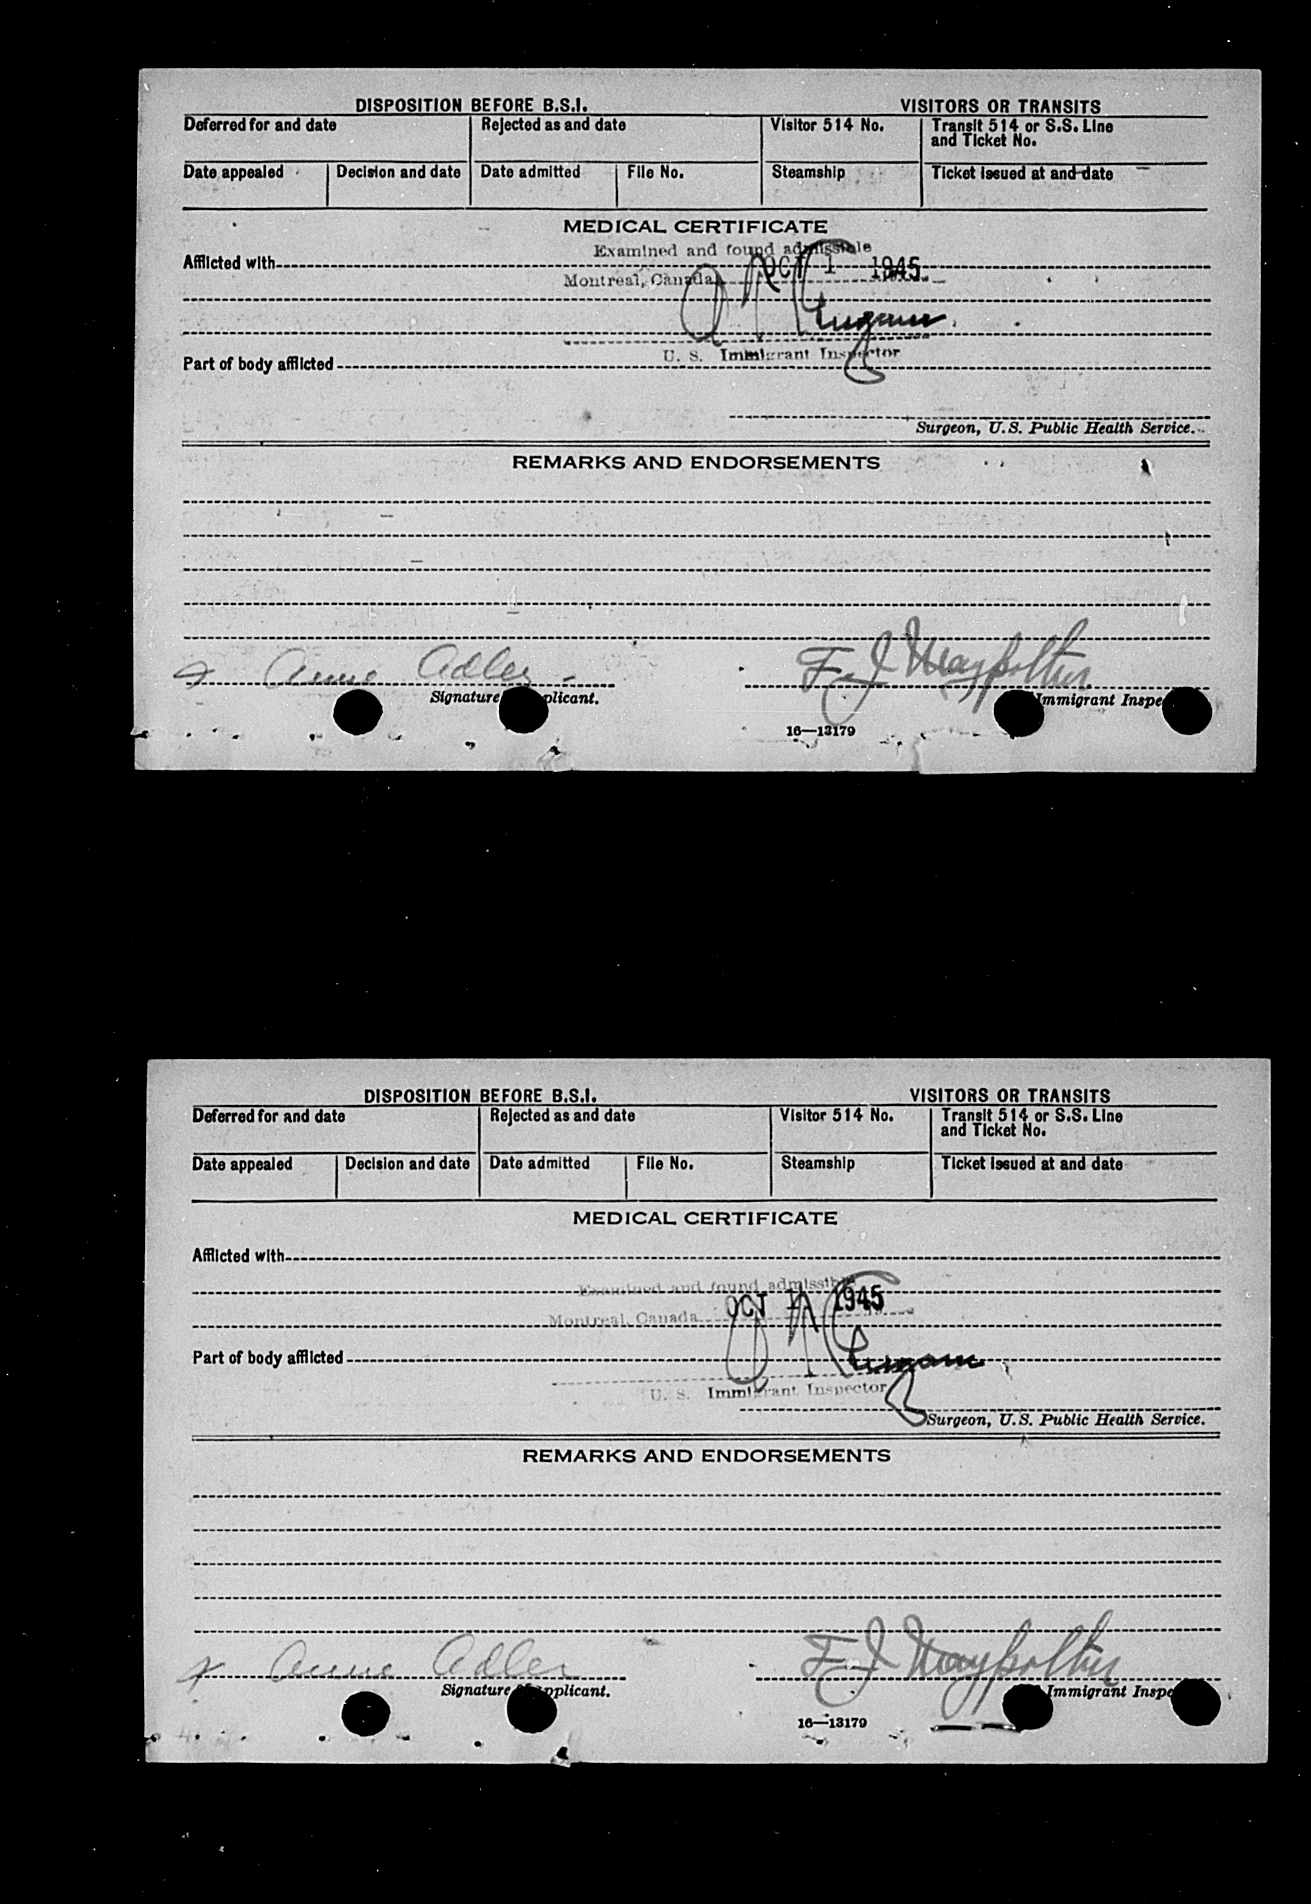 DISPOSITION BEFORE B.S.I. VISITORS OR TRANSITS
Deferred for and date Rejected as and date Visitor 514 No. Transit 514 or S.S. Line and Ticket No.
Date appealed Decision and date Date admitted File No. Steamship Ticket issued at and date
MEDICAL CERTIFICATE
Examined and found admissible
Afflicted with
Montreal, Canada OCT 1 1945
U. S. Immigrant Inspector
Part of body afflicted
Surgeon, U.S. Public Health Service.
REMARKS AND ENDORSEMENTS
x Anne Adler F J
Signature plicant. Immigrant Inspe
16—13179
DISPOSITION BEFORE B.S.I. VISITORS OR TRANSITS
Deferred for and date Rejected as and date Visitor 514 No. Transit 514 or S.S. Line and Ticket No.
Date appealed Decision and date Date admitted File No. Steamship Ticket issued at and date
MEDICAL CERTIFICATE
Afflicted with
Examined and found admissible
Montreal, Canada OCT 1 1945
Part of body afflicted
U. S. Immigrant Inspector
Surgeon, U.S. Public Health Service.
REMARKS AND ENDORSEMENTS
x Anne Adler F J
Signature of applicant. Immigrant Inspe
16—13179